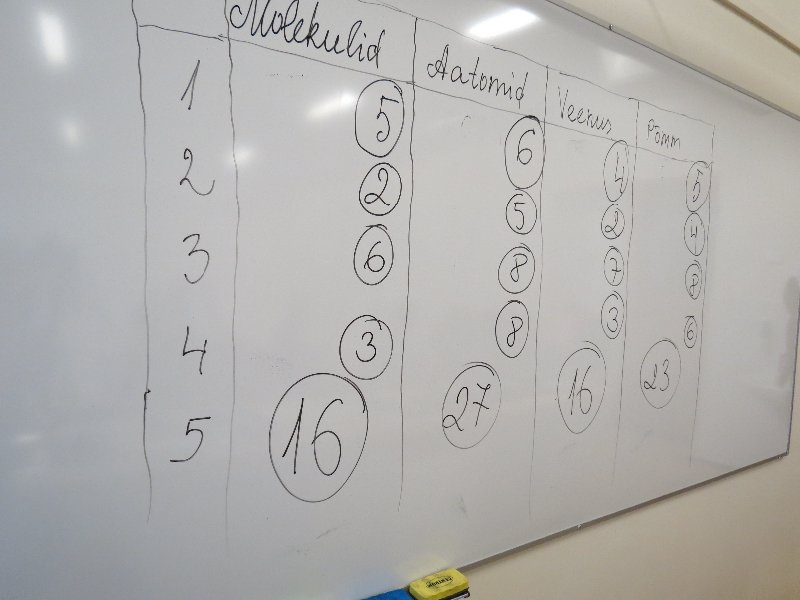 Molekulid Aatomid Veenus Pomm
1 5 6 4 5
2 2 5 2 4
3 6 8 7 8
4 3 8 3 6
5 16 27 16 23